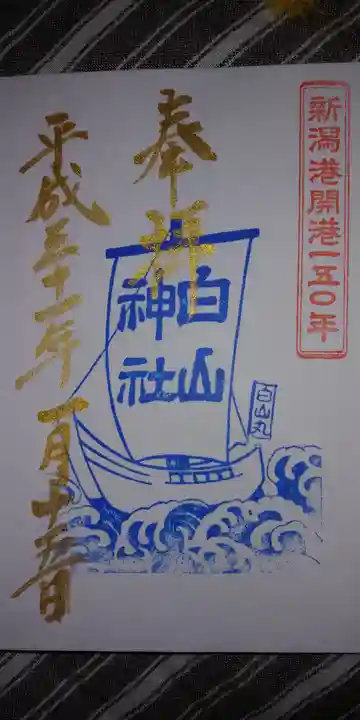 新潟港開港一五〇年
奉拝
白山
神社
白山丸
平成三十一年一月十五日